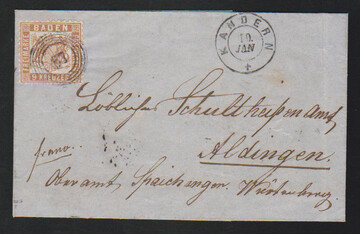 BADEN
FREIMARKE
9 KREUZER
KANDERN
10.
JAN
4
Löbliches Schultheißen Amt
Aldingen.
franco.
Oberamt Spaichingen. Württemberg.